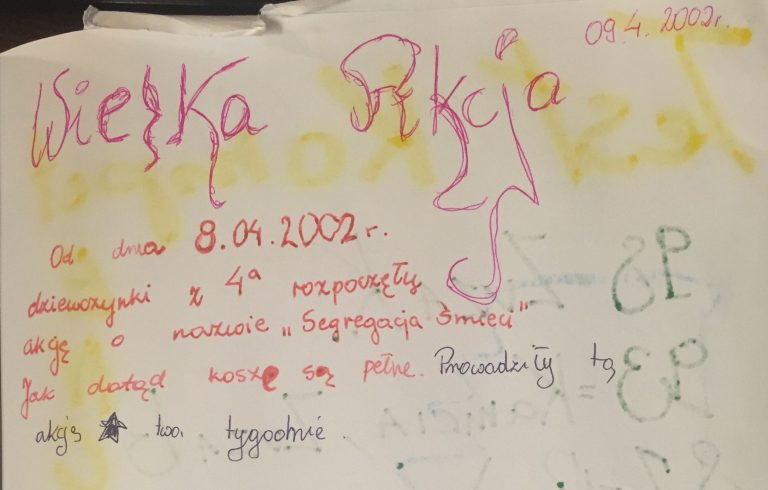 09.4.2002r.
Wielka Akcja
Od dnia 8.04.2002r.
dziewczynki z 4a rozpoczęły
akcję o nazwie „Segregacja śmieci"
Jak dotąd kosze są pełne. Prowadziły tą
akcję two. tygodnie.
98
93